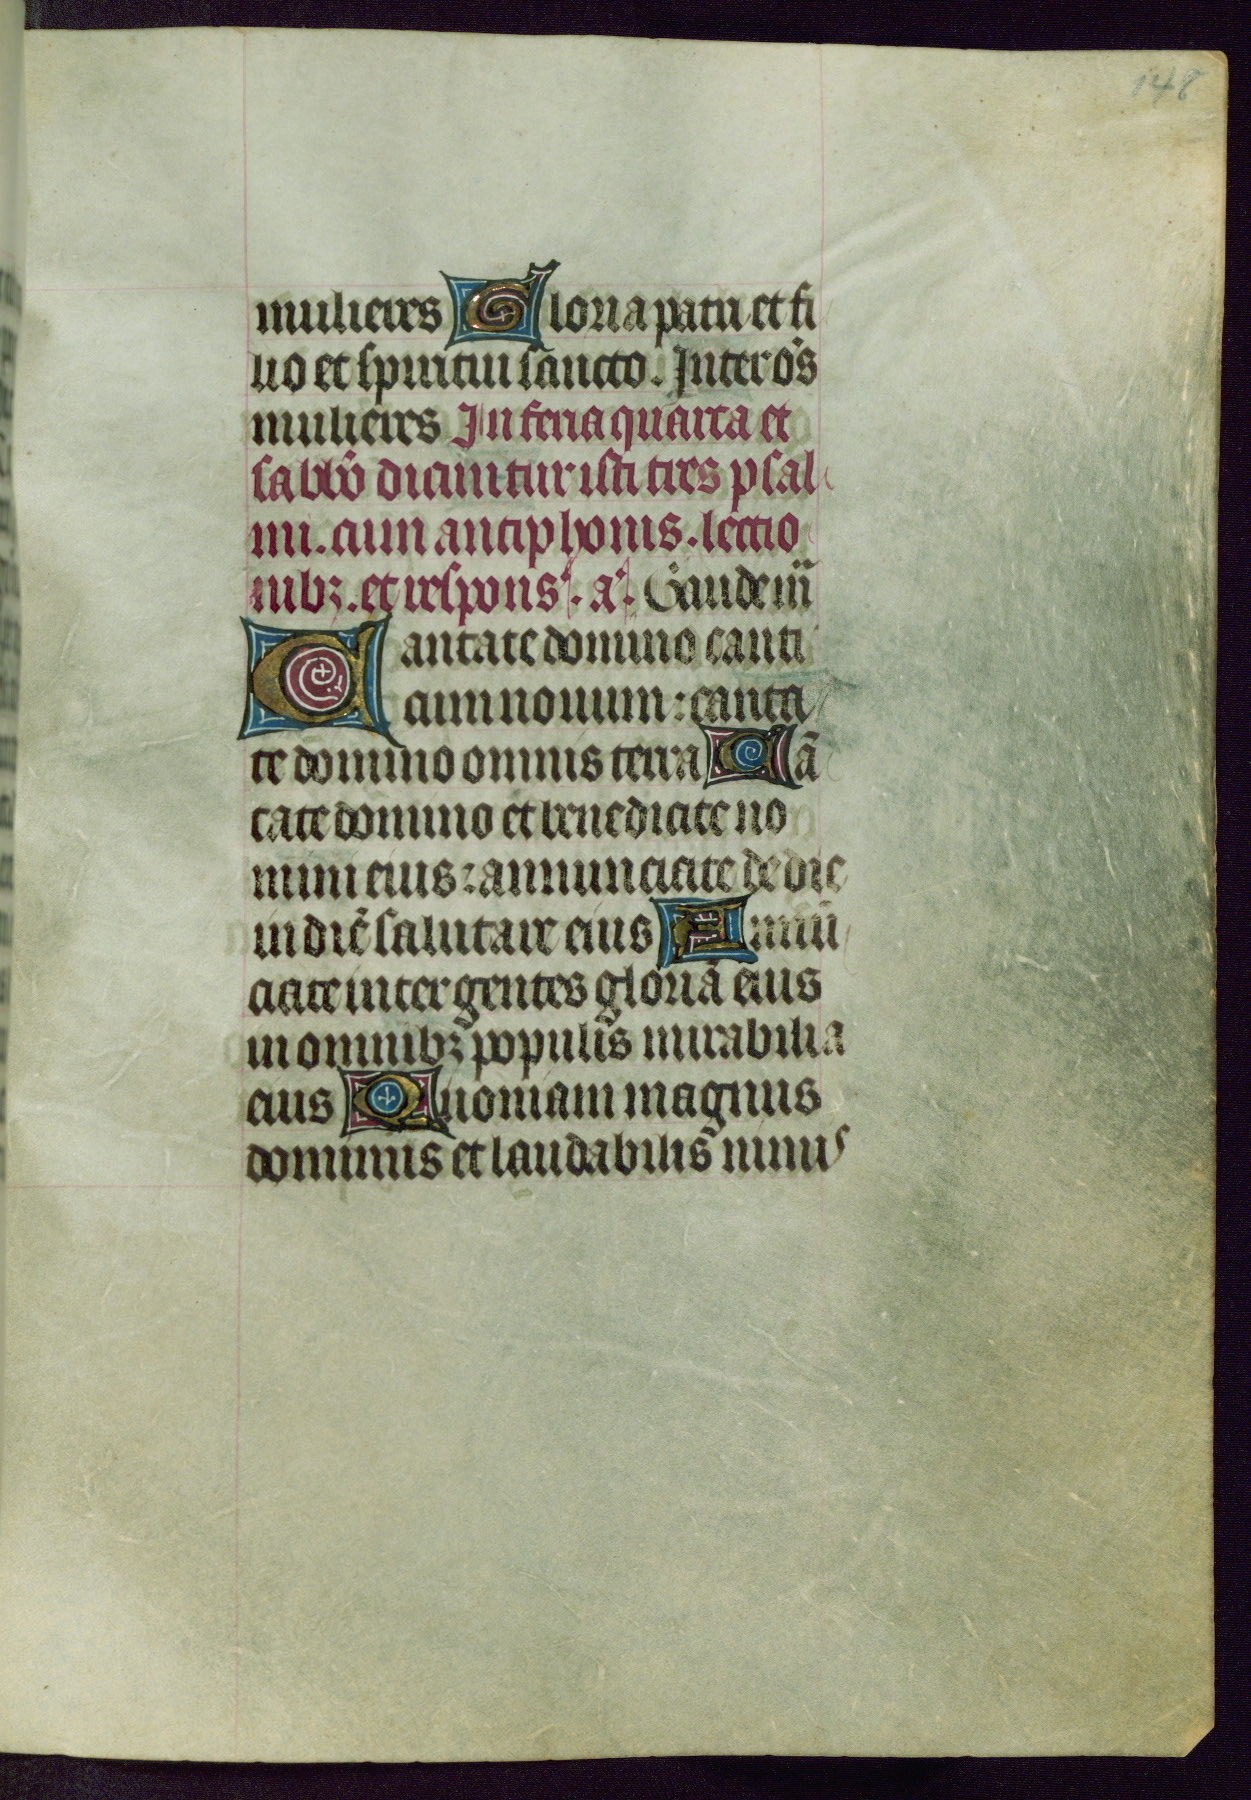 148
mulieres Gloria patri et fi
lio et spiritui sancto. Inter o᷒s
mulieres In feria quarta et
sabb̄o dicuntur isti tres psal
mi. cum antiphonis. lectio
nibꝫ. et respons᷒. a᷒. Gaudem̄
Cantate domino canti
cum nouum: canta
te domino omnis terra Cā
tate domino et benedicite no
mini eius: annunciate de die
in diē salutare eius Annū
ciate inter gentes gloriā eius
in omnibꝫ populis mirabilia
eius Quoniam magnus
dominus et laudabilis nimis